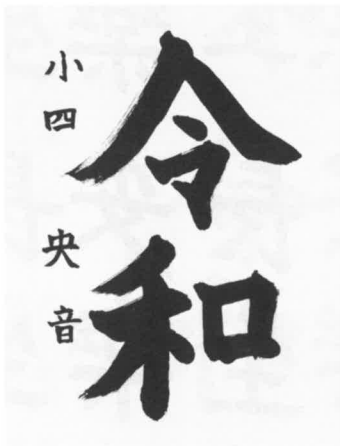 令和
小四 央音